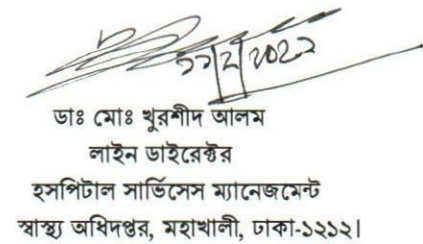 ১১/২/২০২২
ডাঃ মোঃ খুরশীদ আলম
লাইন ডাইরেক্টর
হসপিটাল সার্ভিসেস ম্যানেজমেন্ট
স্বাস্থ্য অধিদপ্তর, মহাখালী, ঢাকা-১২১২।